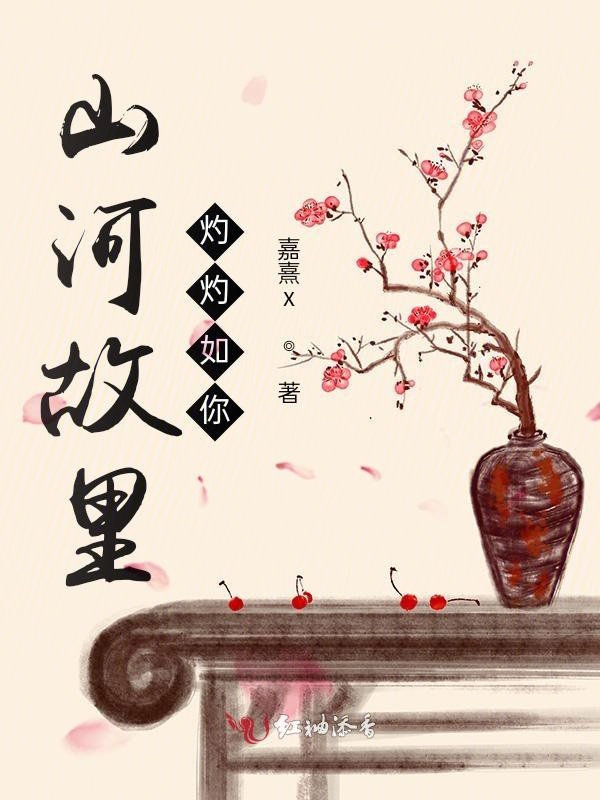 山河故里
灼灼如你
嘉熹x ◎ 著
红袖添香